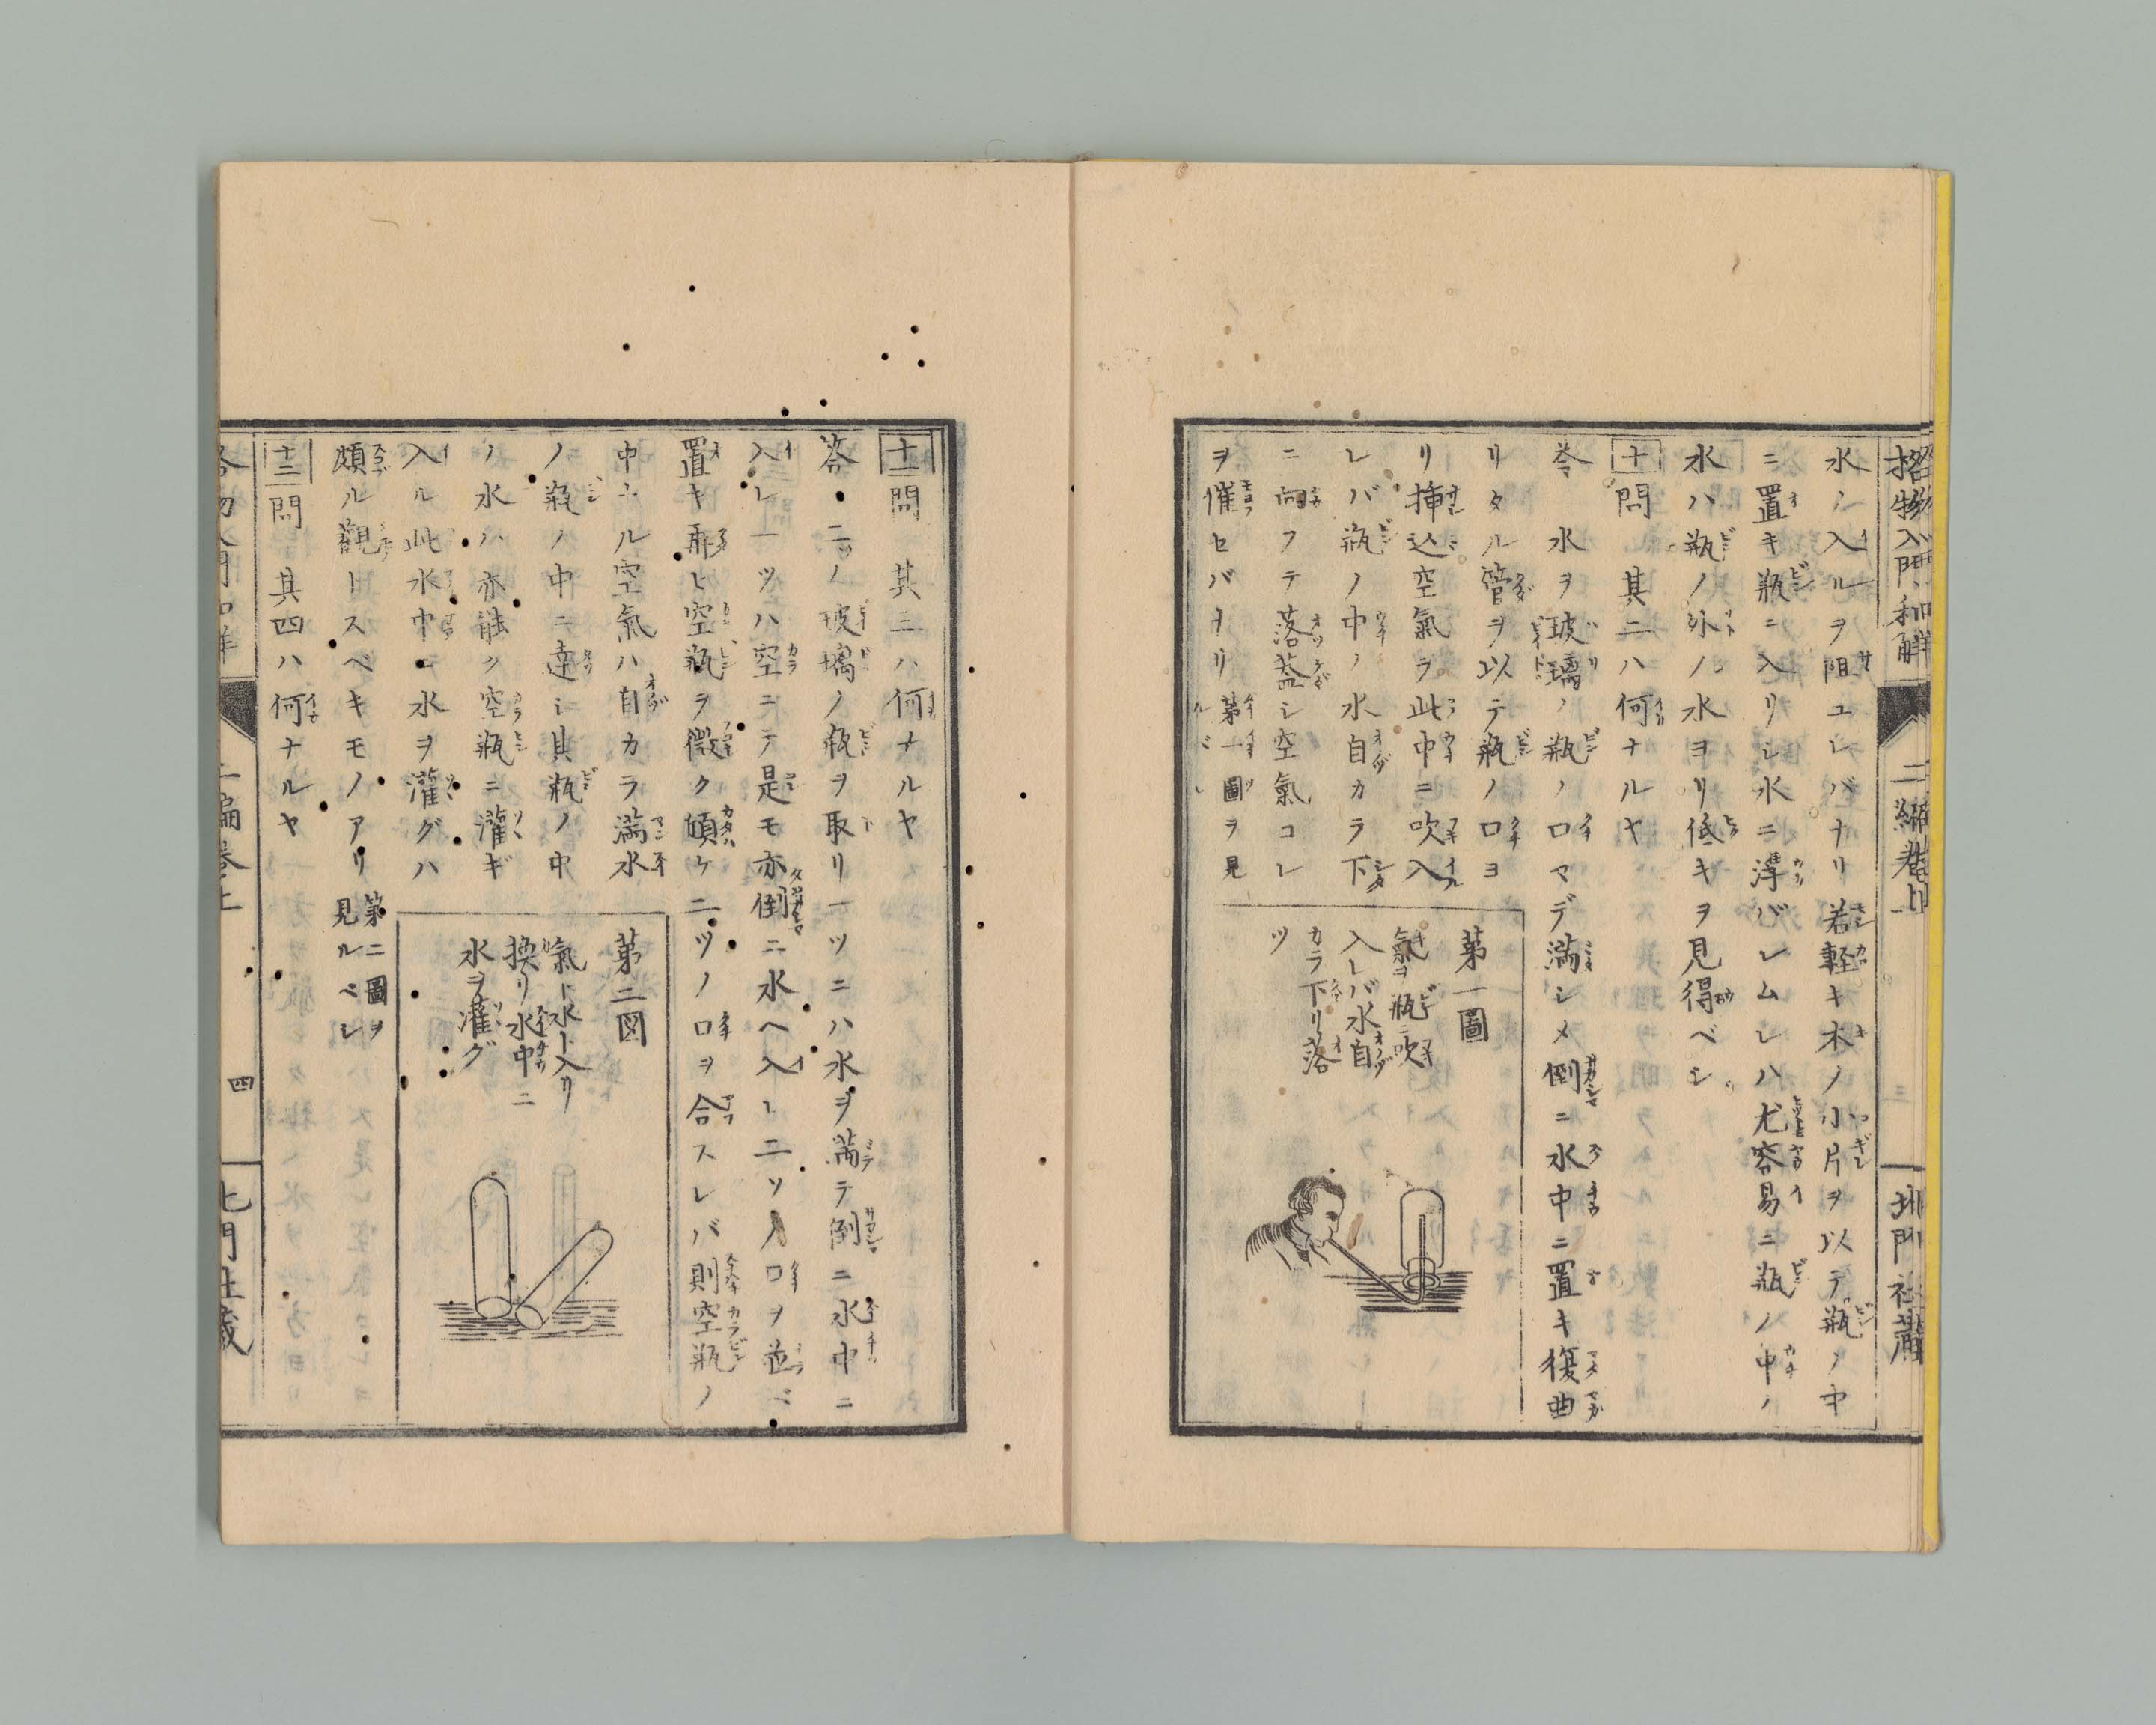 格物入門和解
二編巻上
三
北門社蔵
水ノ入ルヲ阻ユレバナリ若軽キ木ノ小片ヲ以テ瓶ノ中
ニ置キ瓶ニ入リシ水ニ浮バシムレハ尤容易ニ瓶ノ中ノ
水ハ瓶ノ外ノ水ヨリ低キヲ見得ベシ
十問 其二ハ何ナルヤ
答 水ヲ玻璃ノ瓶ノ口マデ満シメ倒ニ水中ニ置キ復曲
リタル管ヲ以テ瓶ノ口ヨ
リ挿込空氣ヲ此中ニ吹入
レバ瓶ノ中ノ水自カラ下
ニ向フテ落葢シ空氣コレ
ヲ催セバナリ第一圖ヲ見ルベシ
第一圖
氣ヲ瓶ニ吹
入レバ水自
カラ下リ落
ツ
十一問 其三ハ何ナルヤ
答 二ツノ玻璃ノ瓶ヲ取リ一ツニハ水ヲ満テ倒ニ水中ニ
入レ一ツハ空ニテ是モ亦倒ニ水ヘ入レ二ツノ口ヲ並ベ
置キ再ヒ空瓶ヲ微ク傾ケ二ツノ口ヲ合スレバ則空瓶ノ
中ニル空氣ハ自カラ満水
ノ瓶ノ中ニ達シ其瓶ノ中
ノ水ハ亦能ク空瓶ニ灌ギ
入ル此水中ニ水ヲ灌グハ
頗ル觀トスベキモノアリ第二圖ヲ見ルベシ
第二図
氣ト水ト入リ
換リ水中ニ
水ヲ灌グ
十二問 其四ハ何ナルヤ
二編巻上
四
北門社蔵